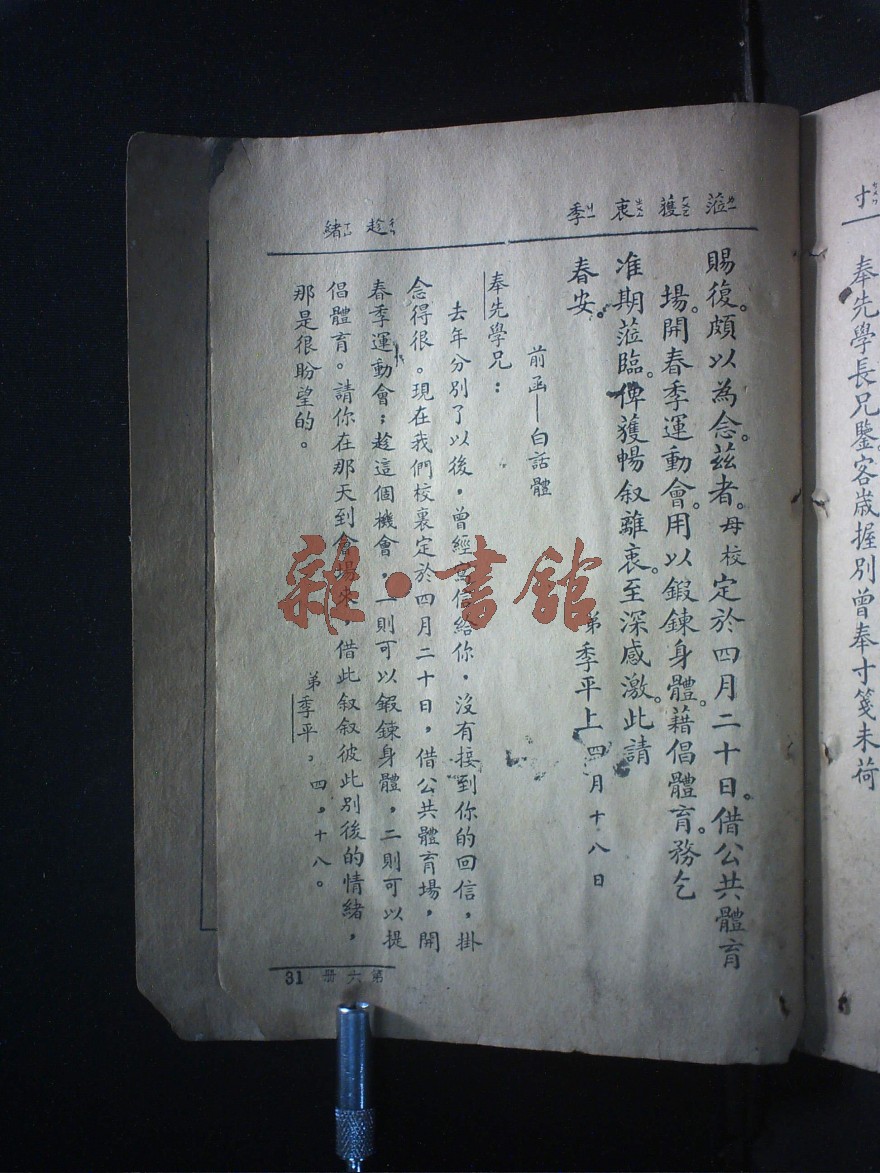 寸
奉先學長兄鑒。客歲握別曾奉寸箋未荷
蒞 獲 衷 季
賜復。頗以為念。茲者。母校定於四月二十日。借公共體育
場。開春季運動會。用以鍛鍊身體。藉倡體育。務乞
准期蒞臨。俾獲暢叙離衷。至深感激。此請
春安。
弟季平上 四月十八日
前函—白話體
趁 緒
奉先學兄：
去年分別了以後，曾經寫信給你，沒有接到你的回信，掛
念得很。現在我們校裏定於四月二十日，借公共體育場，開
春季運動會；趁這個機會，一則可以鍛鍊身體，二則可以提
倡體育。請你在那天到會場來，借此叙叙彼此別後的情緒，
那是很盼望的。
弟季平，四，十八。
第六冊 31
雜·書館